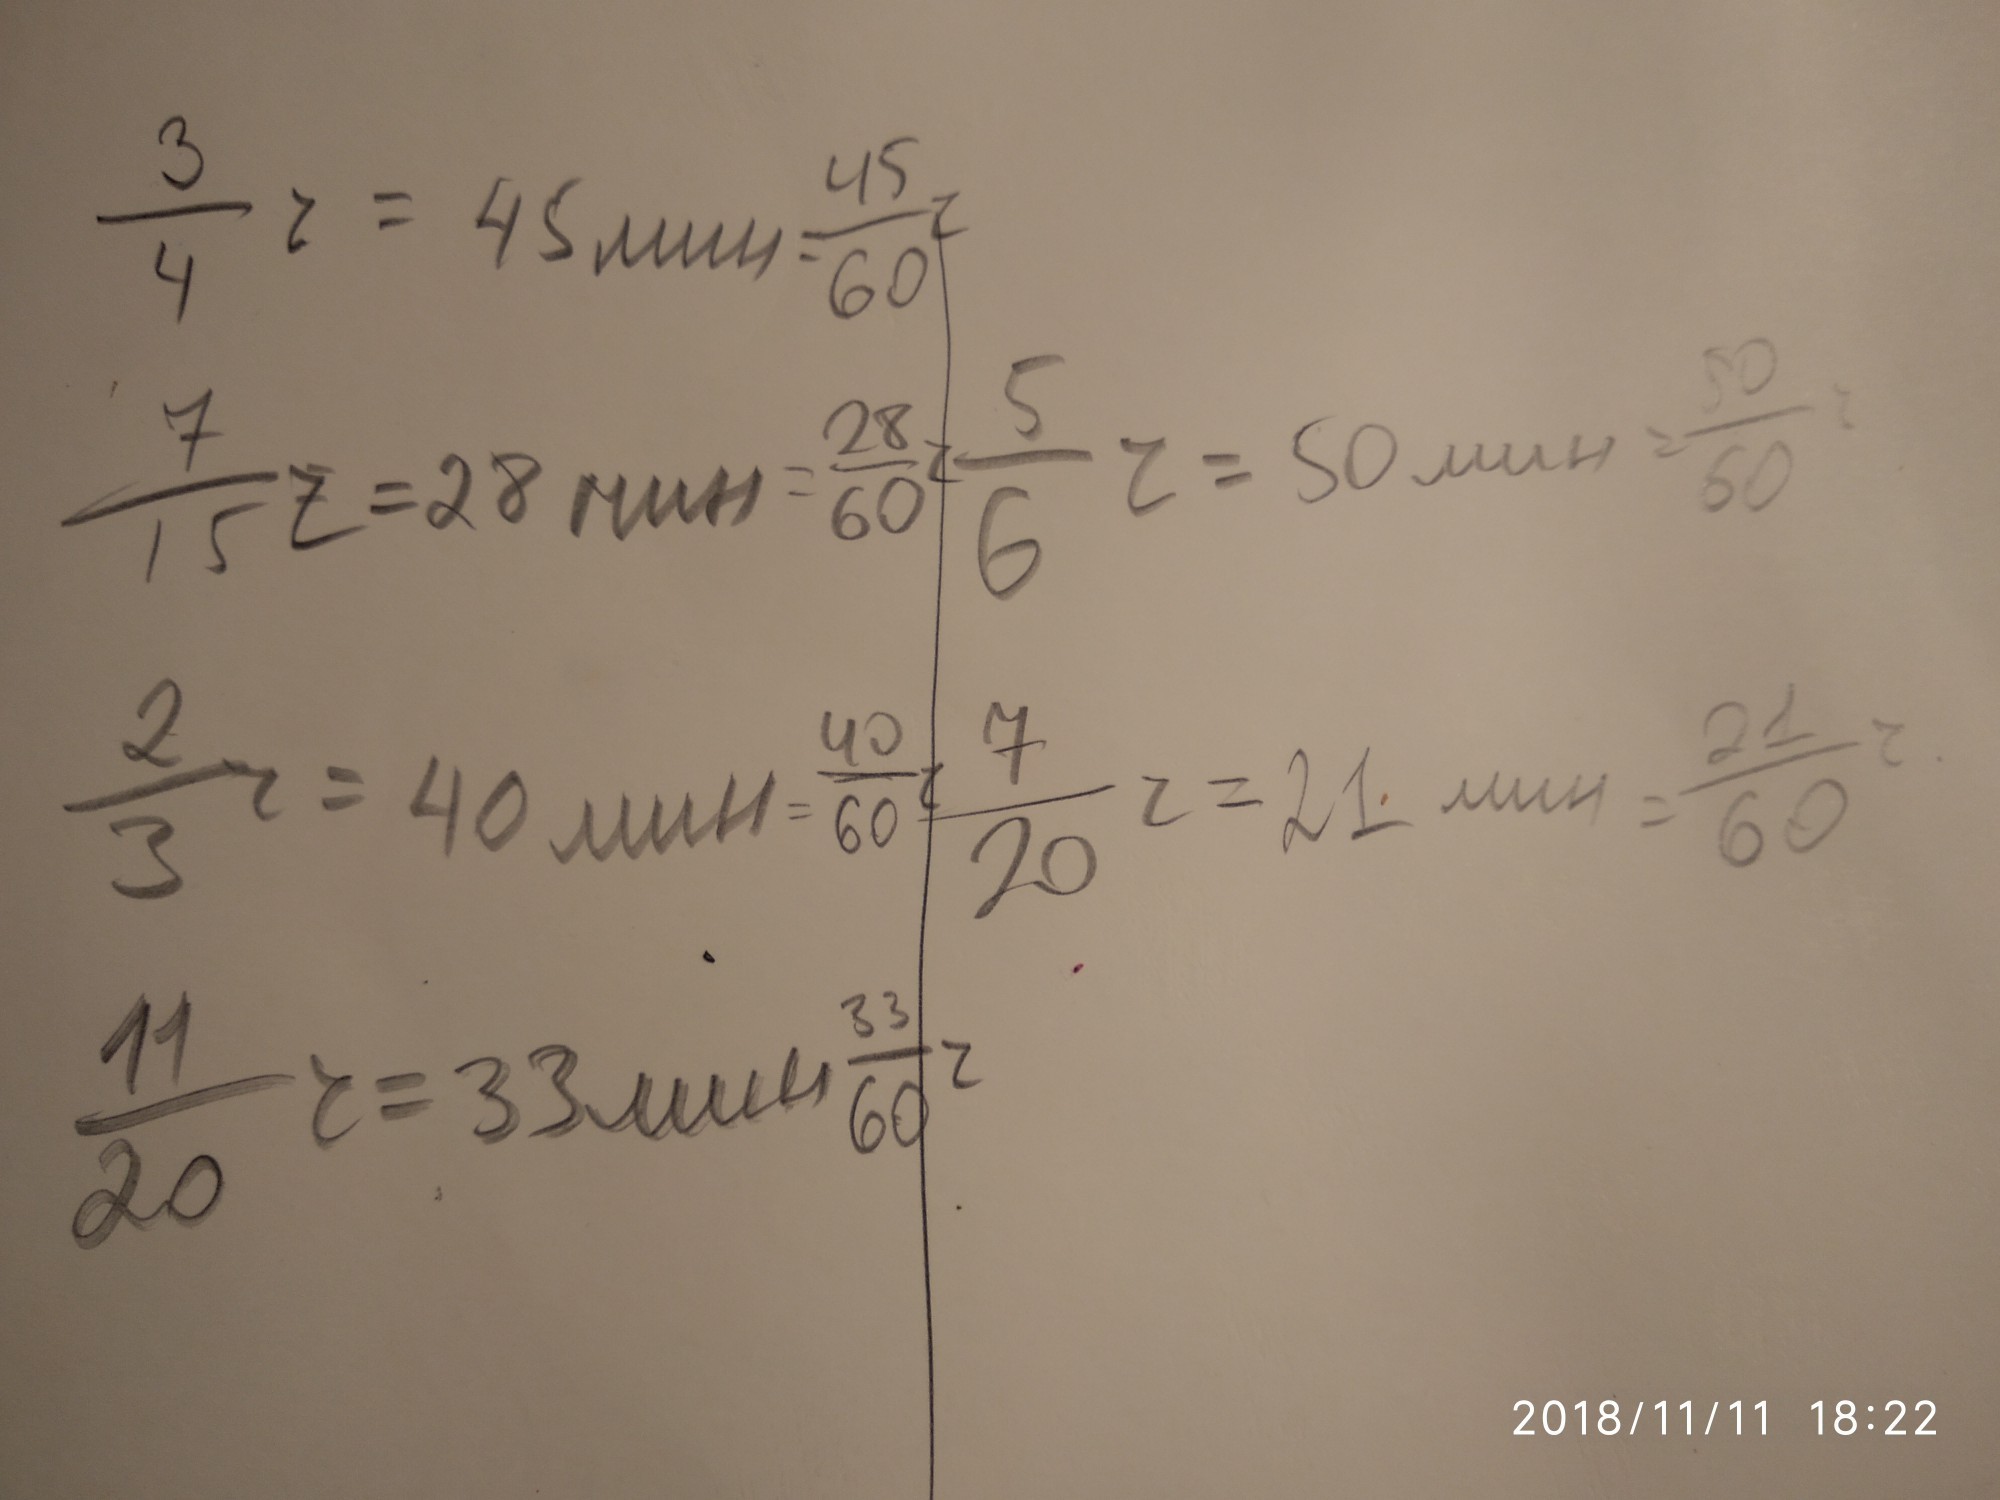 3/4 ч = 45 мин = 45/60 ч
7/15 ч = 28 мин = 28/60 ч
2/3 ч = 40 мин = 40/60 ч
11/20 ч = 33 мин 33/60 ч
5/6 ч = 50 мин = 50/60 ч
7/20 ч = 21 мин = 21/60 ч.
2018/11/11 18:22